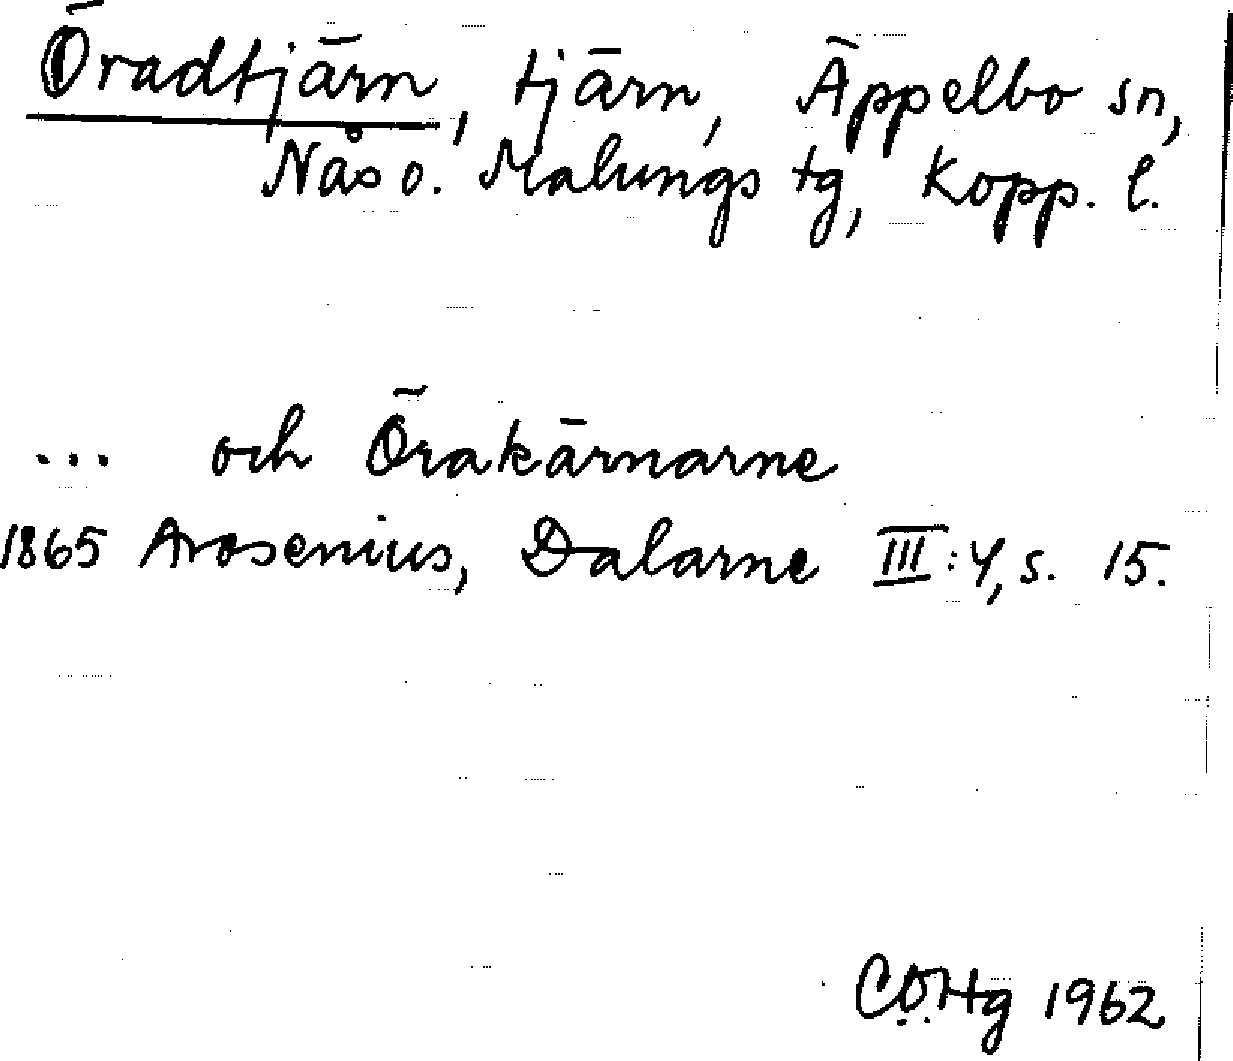 Öradtjärn, tjärn, Äppelbo sn,
Nås o. Malungs tg, Kopp. l.
... och Örakärnarne
1865 Arosenius, Dalarne III:4, s. 15.
C.Ö.Hg 1962